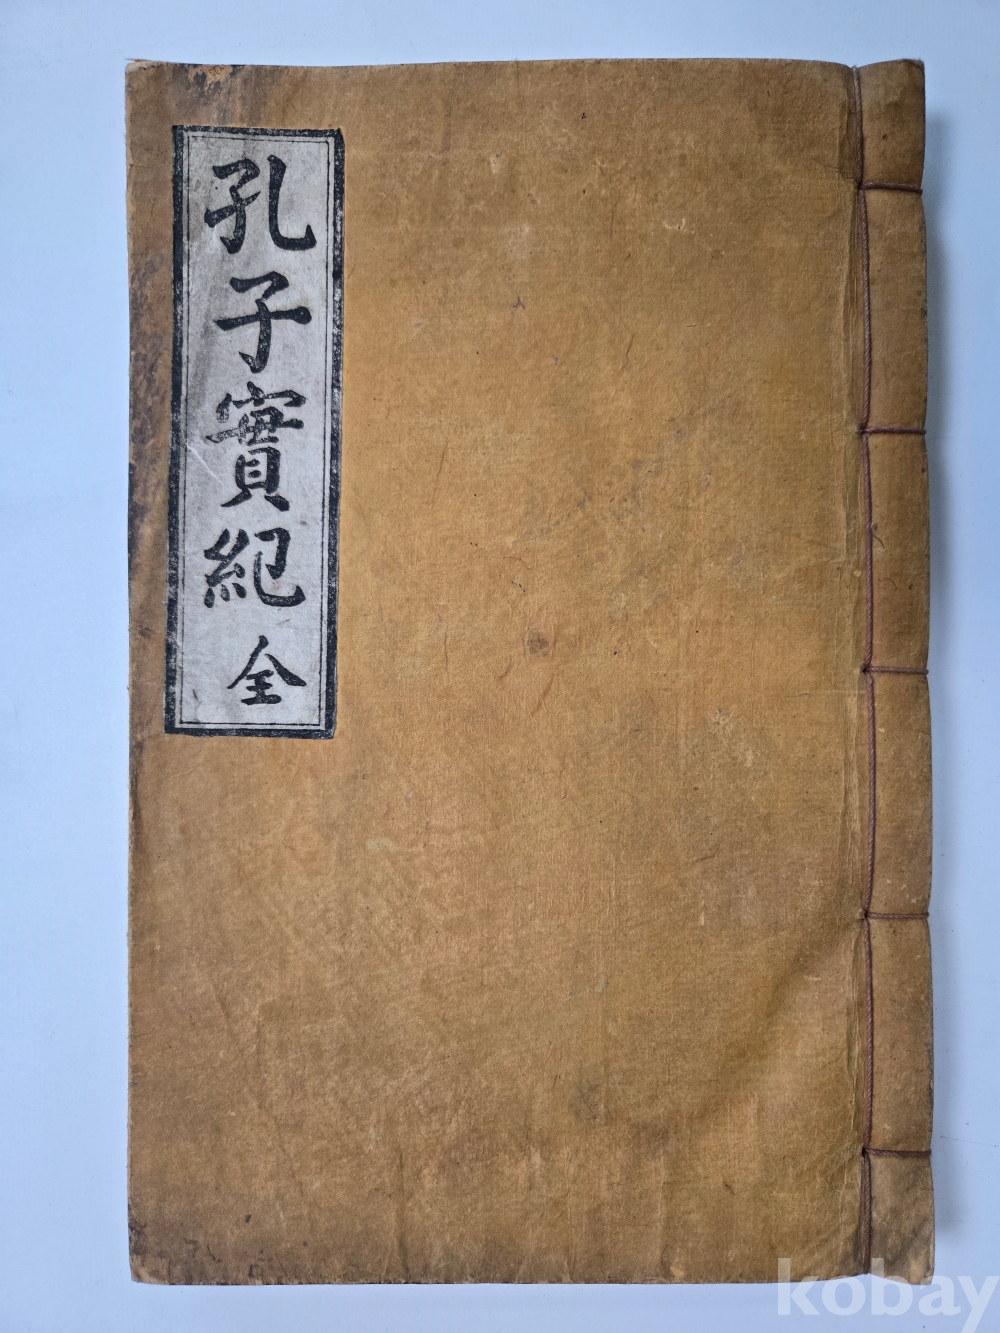 孔子實紀 全
kobay